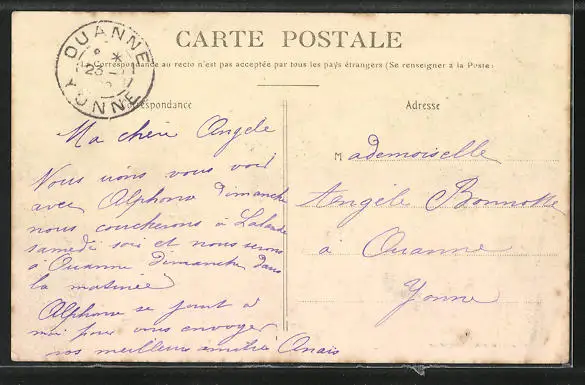 OUANNE
*
23
YONNE
CARTE POSTALE
La Correspondance au recto n'est pas acceptée par tous les pays étrangers (Se renseigner à la Poste)
Correspondance
Ma chère Angèle
Nous irons vous voir
avec Alphonse dimanche
nous coucherons à Lalande
samedi soir et nous serons
à Ouanne dimanche dans
la matinée
Alphonse se joint à
moi pour vous envoyer
nos meilleurs amitiés Anais
Adresse
Mademoiselle
Angèle Bonnotte
à Ouanne
Yonne